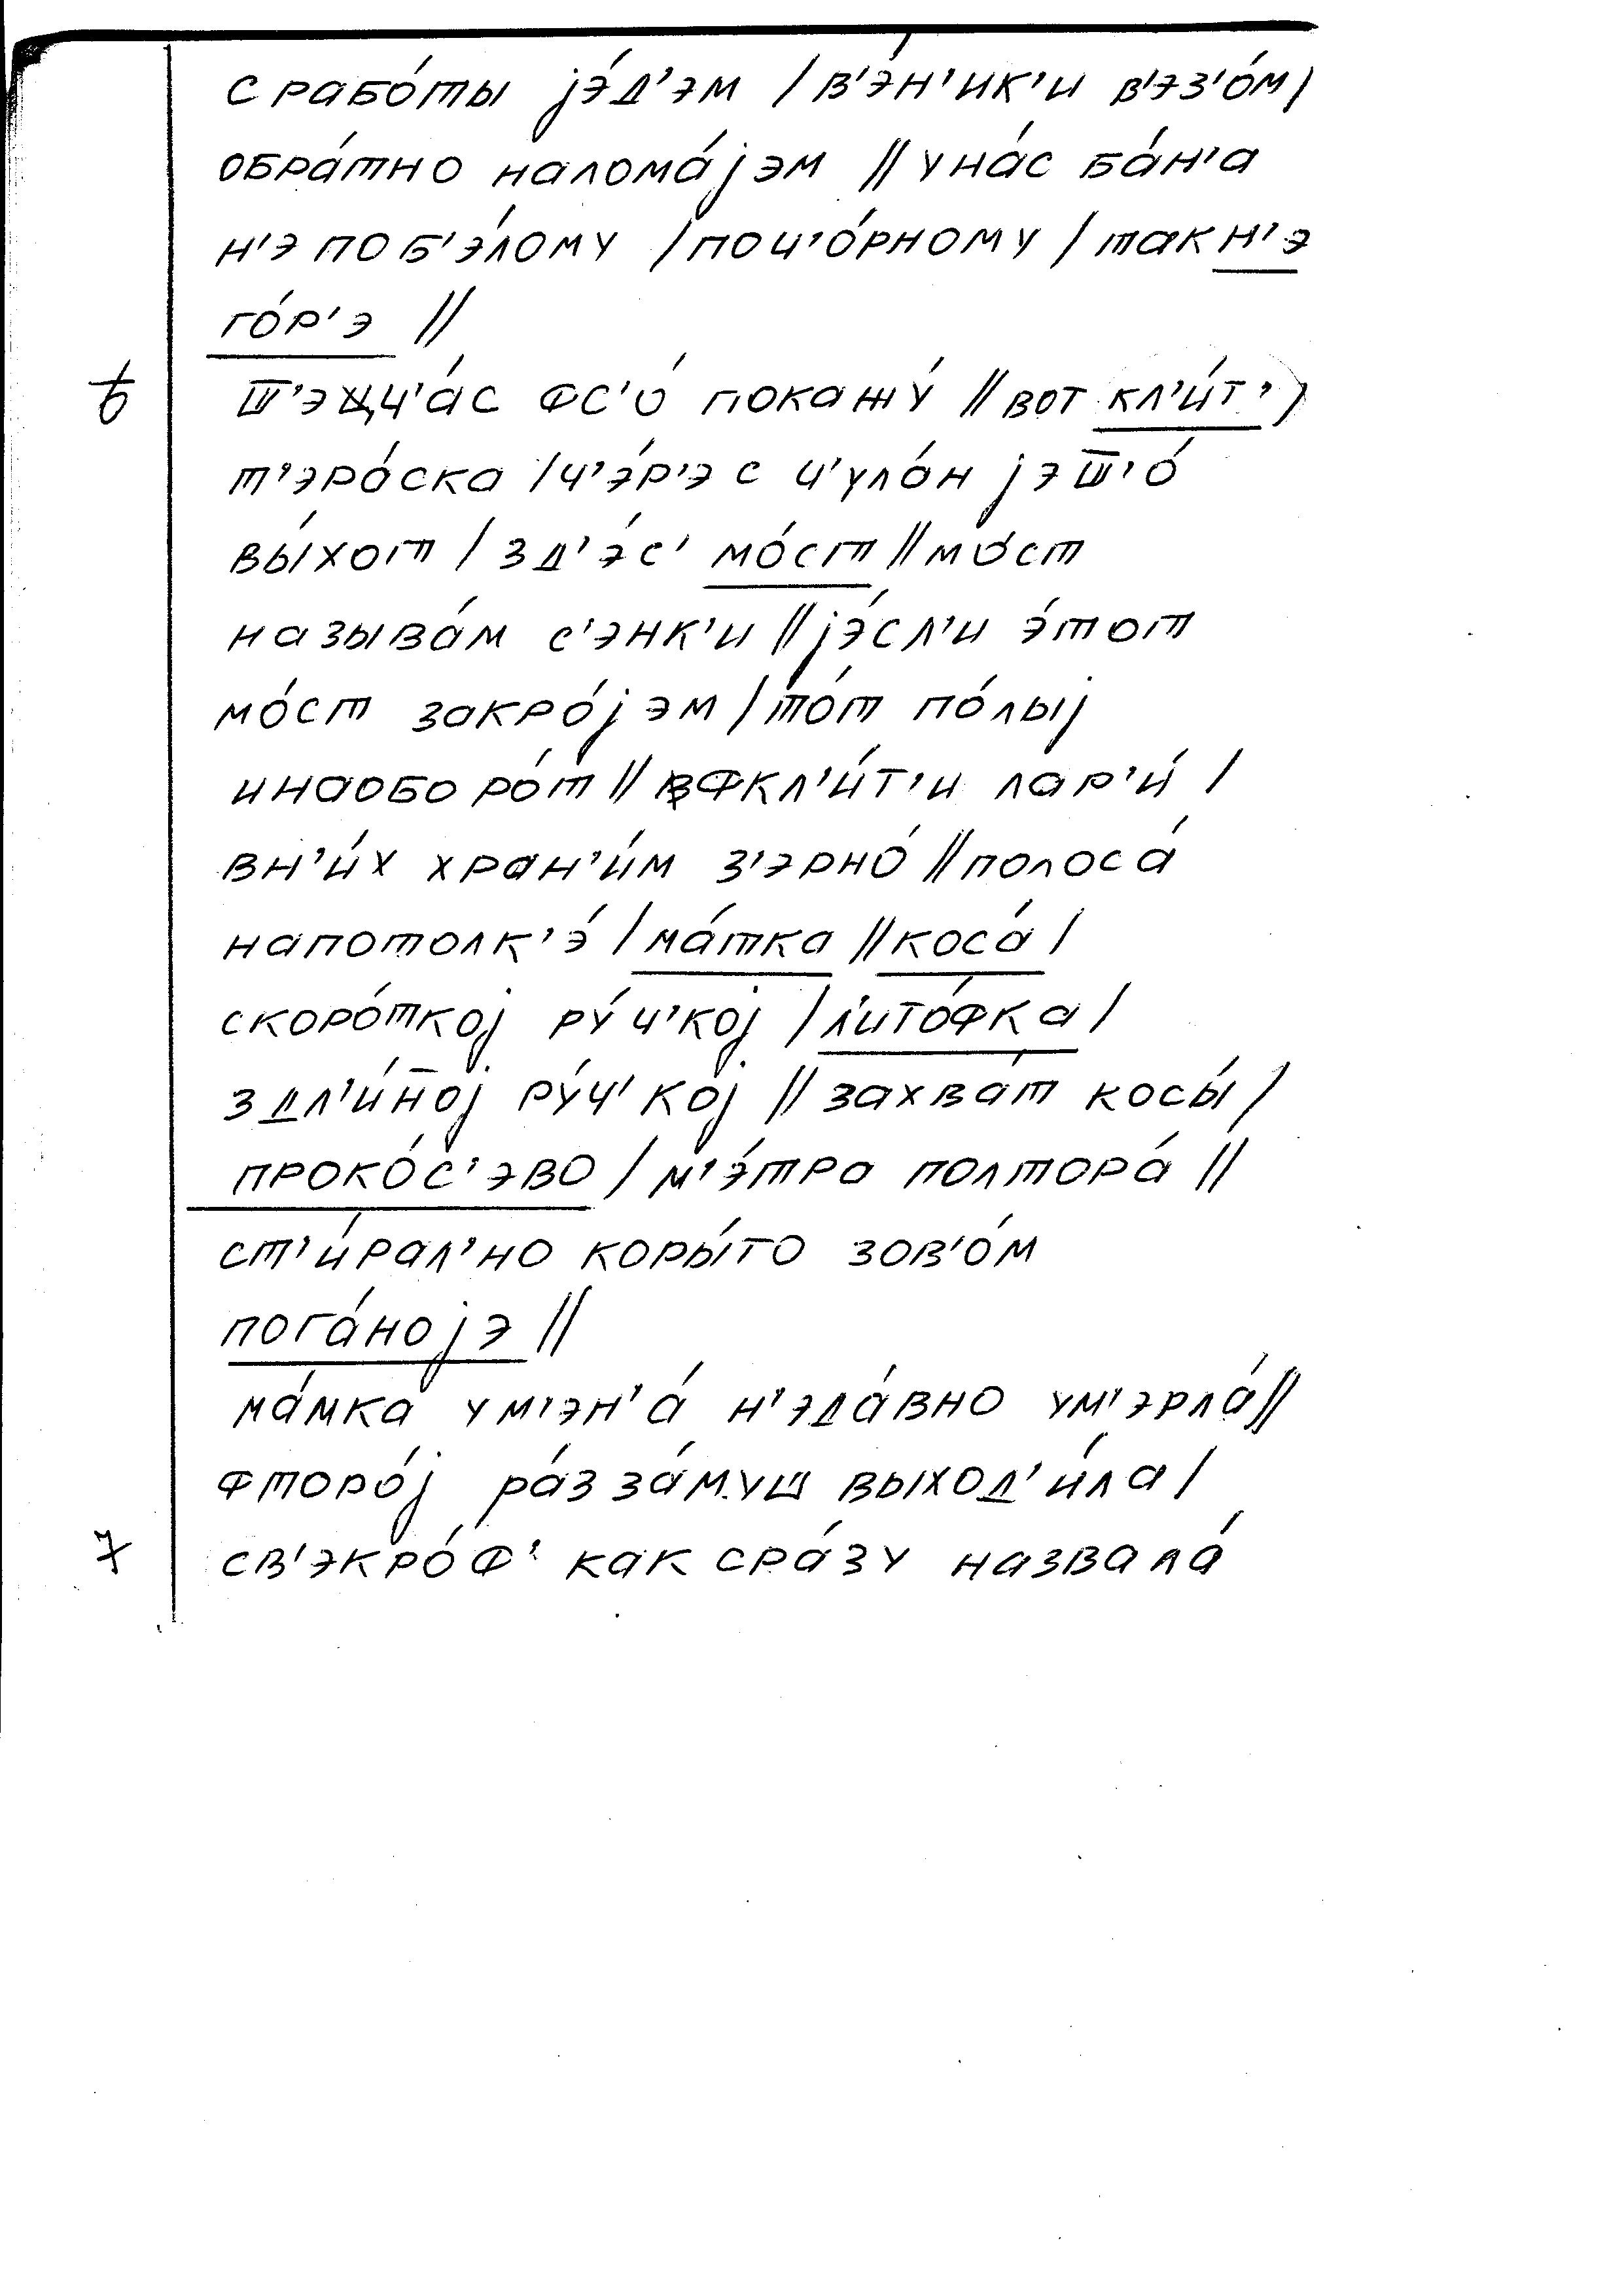 с рабо́ты jэ́д'эм / в'э́н'ик'и в'эз'о́м /
обра́тно налома́jэм // у на́с ба́н'а
н'э по б'э́лому / по ч'о́рному / так н'э
го́р'э //
6 ш̅'эщч'а́с фс'о́ покажу́ // вот кл'и́т' /
т'эра́ска / ч'э́р'э с ч'ула́н jэш̅'о́
вы́хот / зд'э́с' мо́ст // мо́ст
называ́м с'э́нк'и // jэ́сл'и э́тот
мо́ст закро́jэм / то́т по́лыj
и наоборо́т // в фкл'и́т'и лар'и́ /
в н'и́х хран'и́м з'эрно́ // полоса́
на потолк'э́ / ма́тка // коса́ /
с коро́ткоj ру́ч'коj / л'ито́фка /
з дл'и́н̅оj ру́ч'коj // захва́т косы́ /
проко́с'эво / м'э́тра полтора́ //
ст'и́рал'но коры́то зов'о́м
пога́ноjэ //
ма́мка у м'эн'а́ н'эда́вно ум'эрла́ //
фторо́j ра́з за́муш выход'и́ла /
7 св'экро́ф' как сра́зу назвала́